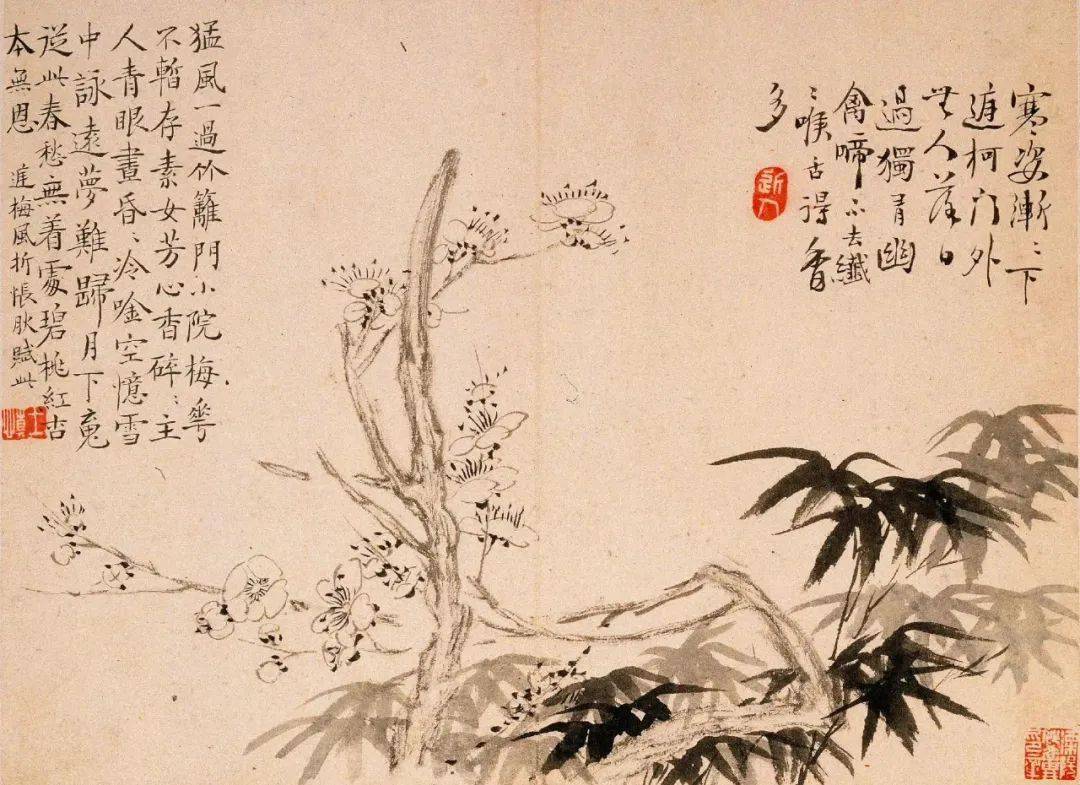 寒姿漸〻下
庭柯门外
無人落日
過獨有幽
禽啼不去纖
〻喉舌得香
多
近人
猛風一過竹籬門小院梅華
不暫存素女芳心香碎〻主
人青眼晝昏〻冷唫空憶雪
中詠遠夢難歸月下魂
從此春愁無着處碧桃紅杏
本無恩 庭梅風折悵肰賦此
士慎